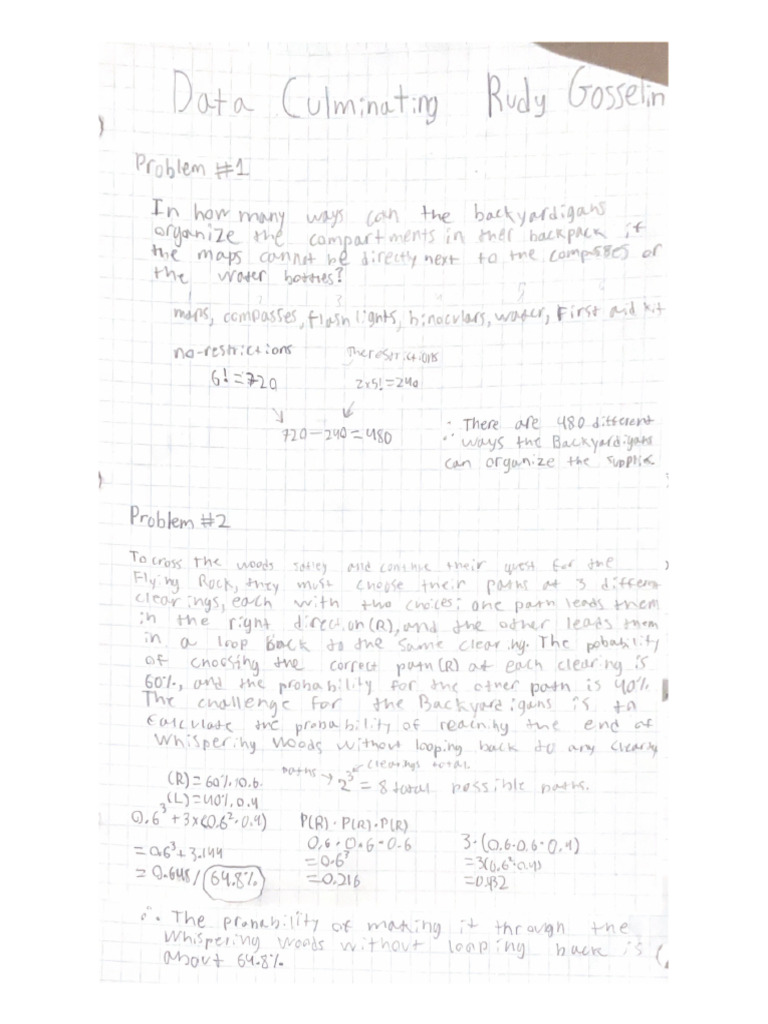 Data Culminating Rudy Gosselin
Problem #1
In how many ways can the backyardigans
organize the compartments in ther backpack if
the maps cannot be directly next to the compasses or
the water bottles?
1 2 3 4 5 6
maps, compasses, flash lights, binoculars, water, First aid kit
no-restrictions The restrictions
6! = 720 2x5! = 240
720 - 240 = 480
∴ There are 480 different
ways the Backyardigans
can organize the supplies.
Problem #2
To cross the woods safley and continue their quest for the
Flying Rock, they must choose their paths at 3 different
clearings, each with two choices; one path leads them
in the right direction (R), and the other leads them
in a loop back to the same clearing. The pobability
of choosing the correct path (R) at each clearing is
60%, and the probability for the other path is 40%.
The challenge for the Backyardigans is to
calculate the probability of reaching the end of
Whispering Woods without looping back to any clearing
(R) = 60% 0.6. paths → 2³ ← clearings total. = 8 total possible paths.
(L) = 40% 0.4
0.6³ + 3x(0.6² · 0.4) P(R) · P(R) · P(R)
0.6 · 0.6 · 0.6 3 · (0.6 · 0.6 · 0.4)
= 0.6³ + 3.144 = 0.6³ = 3(0.6² · 0.4)
= 0.648 / 64.8% = 0.216 = 0.432
∴ The probability of making it through the
Whispering woods without looping back is
about 64.8%.